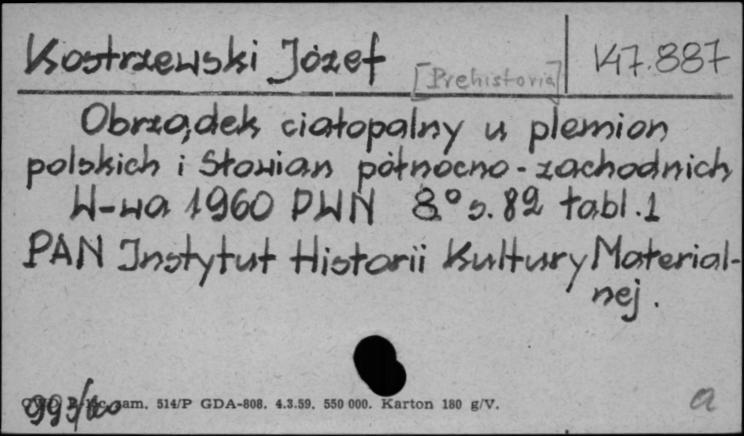 Kostrzewski Józef [Prehistoria] V47.887
Obrządek ciałopalny u plemion
polskich i Słowian północno-zachodnich
W-wa 1960 PWN 8° s. 82 tabl. 1
PAN Instytut Historii Kultury Material-
nej.
zam. 514/P GDA-808. 4.3.59. 550 000. Karton 180 g/V.
a